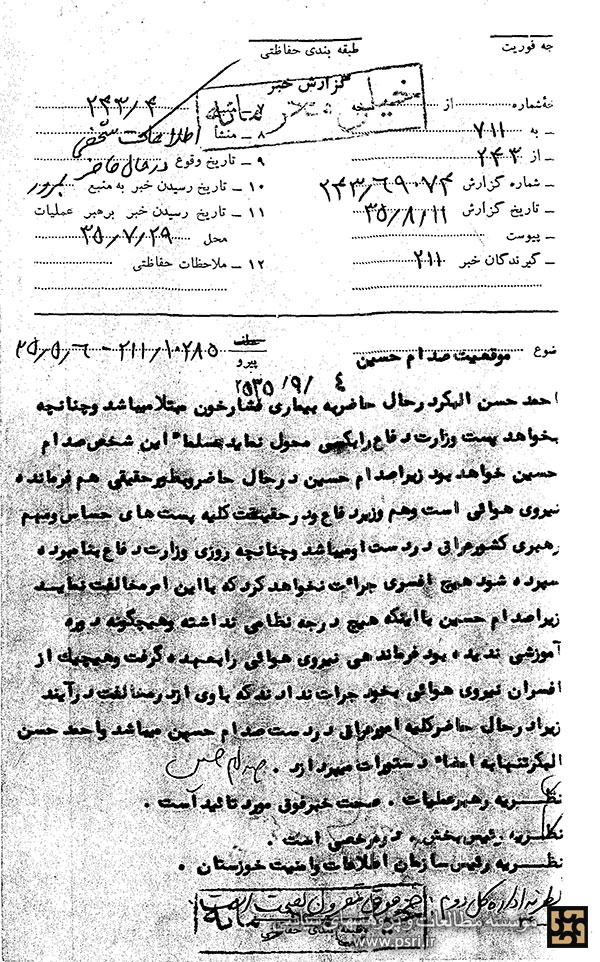 طبقه بندی حفاظتی
گزارش خبر
خیلی محرمانه
شماره از
ـ به ۷۱۱
ـ از ۲۴۳
ـ شماره گزارش ۲۴۳/۶۹۰۷۴
ـ تاریخ گزارش ۳۵/۸/۱۱
ـ پیوست
ـ گیرندگان خبر ۲۱۱
۲۴۳/۴
۸ ـ منشأ اطلاعات شخصی
۹ ـ تاریخ وقوع در حال حاضر
۱۰ ـ تاریخ رسیدن خبر به منبع بمرور
۱۱ ـ تاریخ رسیدن خبر برهبر عملیات
محل ۳۵/۷/۲۹
۱۲ ـ ملاحظات حفاظتی
موقعیت صدام حسین
پیرو ۲۱۱/۱۰۲۸۵ - ۲۵/۵/۶
۲۵۳۵/۹/۴
احمد حسن البکردرحال حاضربه بیماری فشارخون مبتلامیباشد وچنانچه
بخواهد پست وزارت دفاع رابکسی محول نماید مسلما" این شخص صدام
حسین خواهد بود زیراصدام حسین درحال حاضربطورحقیقی هم فرمانده
نیروی هوائی است وهم وزیردفاع ودرحقیقت کلیه پست های حساس ومهم
رهبری کشورعراق دردست اومیباشد وچنانچه روزی وزارت دفاع بنامبرده
سپرده شود هیچ افسری جرات نخواهد کرد که بااین امرمخالفت نماید
زیراصدام حسین بااینکه هیچ درجه نظامی نداشته وهیچگونه دوره
آموزشی ندیده بود فرماندهی نیروی هوائی رابعهده گرفت وهیچیک از
افسران نیروی هوائی بخود جرات ندادند که باوی ازدرمخالفت درآیند
زیرادرحال حاضرکلیه امورعراق دردست صدام حسین میباشد واحمد حسن
البکرتنهابه امضاء دستورات میپردازد . صدام حسین
نظـریه رهبرعملیات . صحت خبرفوق مورد تائید است .
نظـریه رئیس بخش . درمرخصی است .
نظـریه رئیس سازمان اطلاعات وامنیت خوزستان .
نظریه اداره کل دوم . خبر فوق مقرون بصحت است
طبقه بندی حفاظتی
موسسه مطالعات و پژوهشهای سیاسی
www.psri.ir